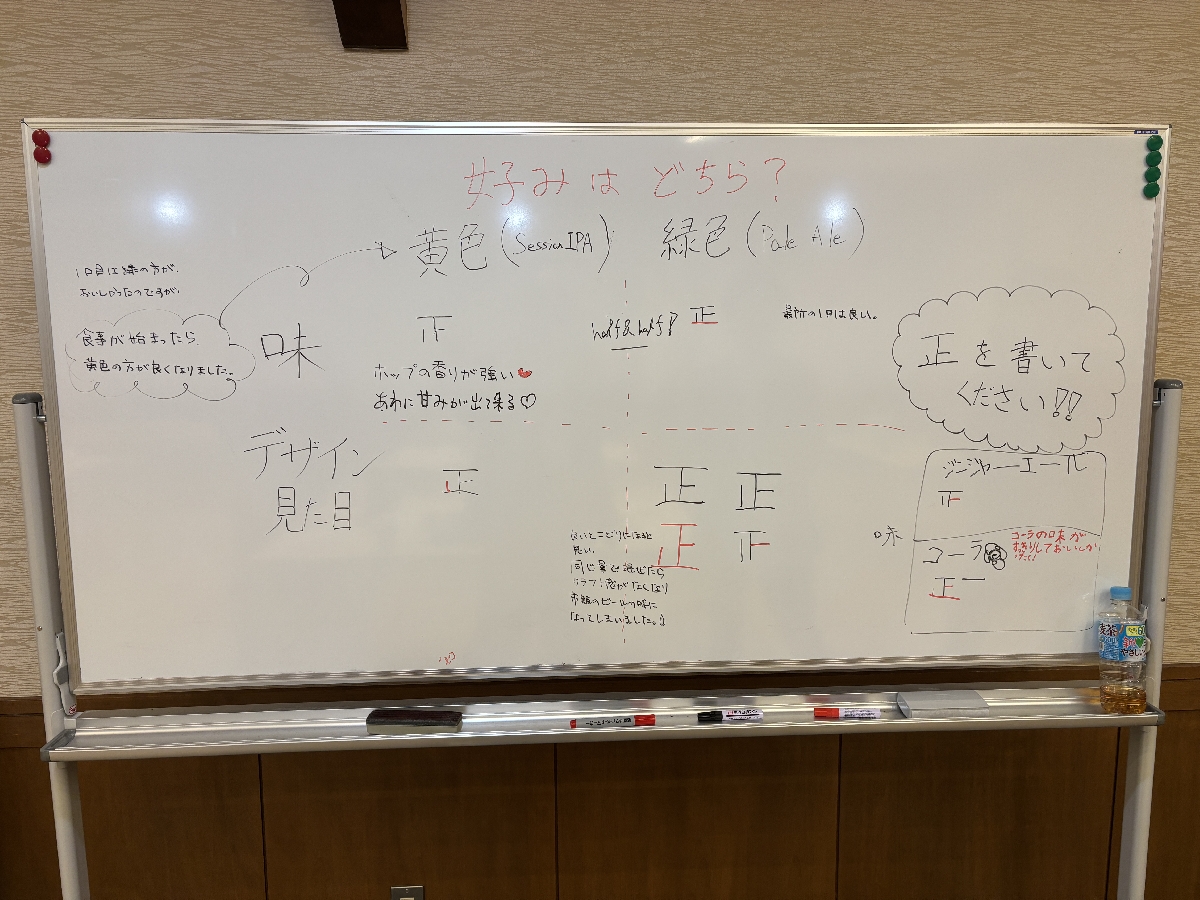 好みは どちら?
黄色 (Session IPA)
緑色 (Pale Ale)
1口目は緑の方が、
おいしかったのですが、
食事が始まったら
黄色の方が良くなりました。
味
正
ホップの香りが強い
あわに甘みが出て来る♡
half & half!
正
最初の1口は良い。
正を書いて
ください!!
デザイン
見た目
正
正 正
正 正
良いとこどりにはならない
同じ量を混ぜたら
クラフト感がなくなり
普通のビールの味に
なってしまいました。
味
ジンジャーエール
正
コーラ
コーラの味が
すっきりしておいしか
正一
麦茶